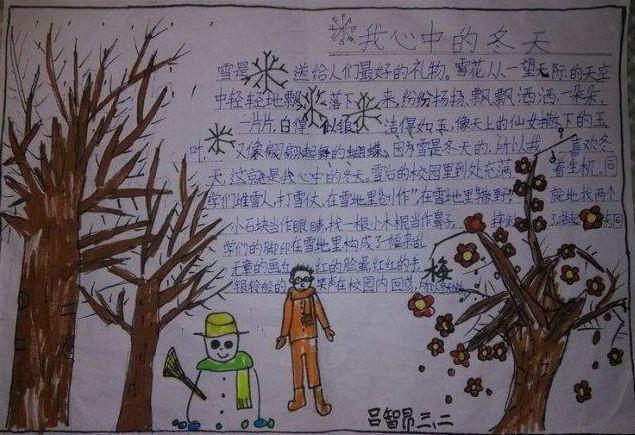 我心中的冬天
雪是 送给人们最好的礼物。雪花从一望无际的天空
中轻轻地飘 落下 来,纷纷扬扬,飘飘洒洒,一朵朵,
一片片,白得 似银 洁得如玉,像天上的仙女散下的玉
叶, 又像翩翩起舞的蝴蝶。因为雪是冬天的,所以我 喜欢冬
天,这就是我心中的冬天。雪后的校园里到处充满 着生机。同
学们堆雪人、打雪仗,在雪地里"创作",在雪地里"撒野" 就地找两个
小石块当作眼睛,找一根小木棍当作鼻子
学们的脚印在雪地里构成了一幅杂乱
无章的画 红红的脸蛋,红红的手,
银铃般的 笑声在校园内回荡
梅
吕智昂三、二